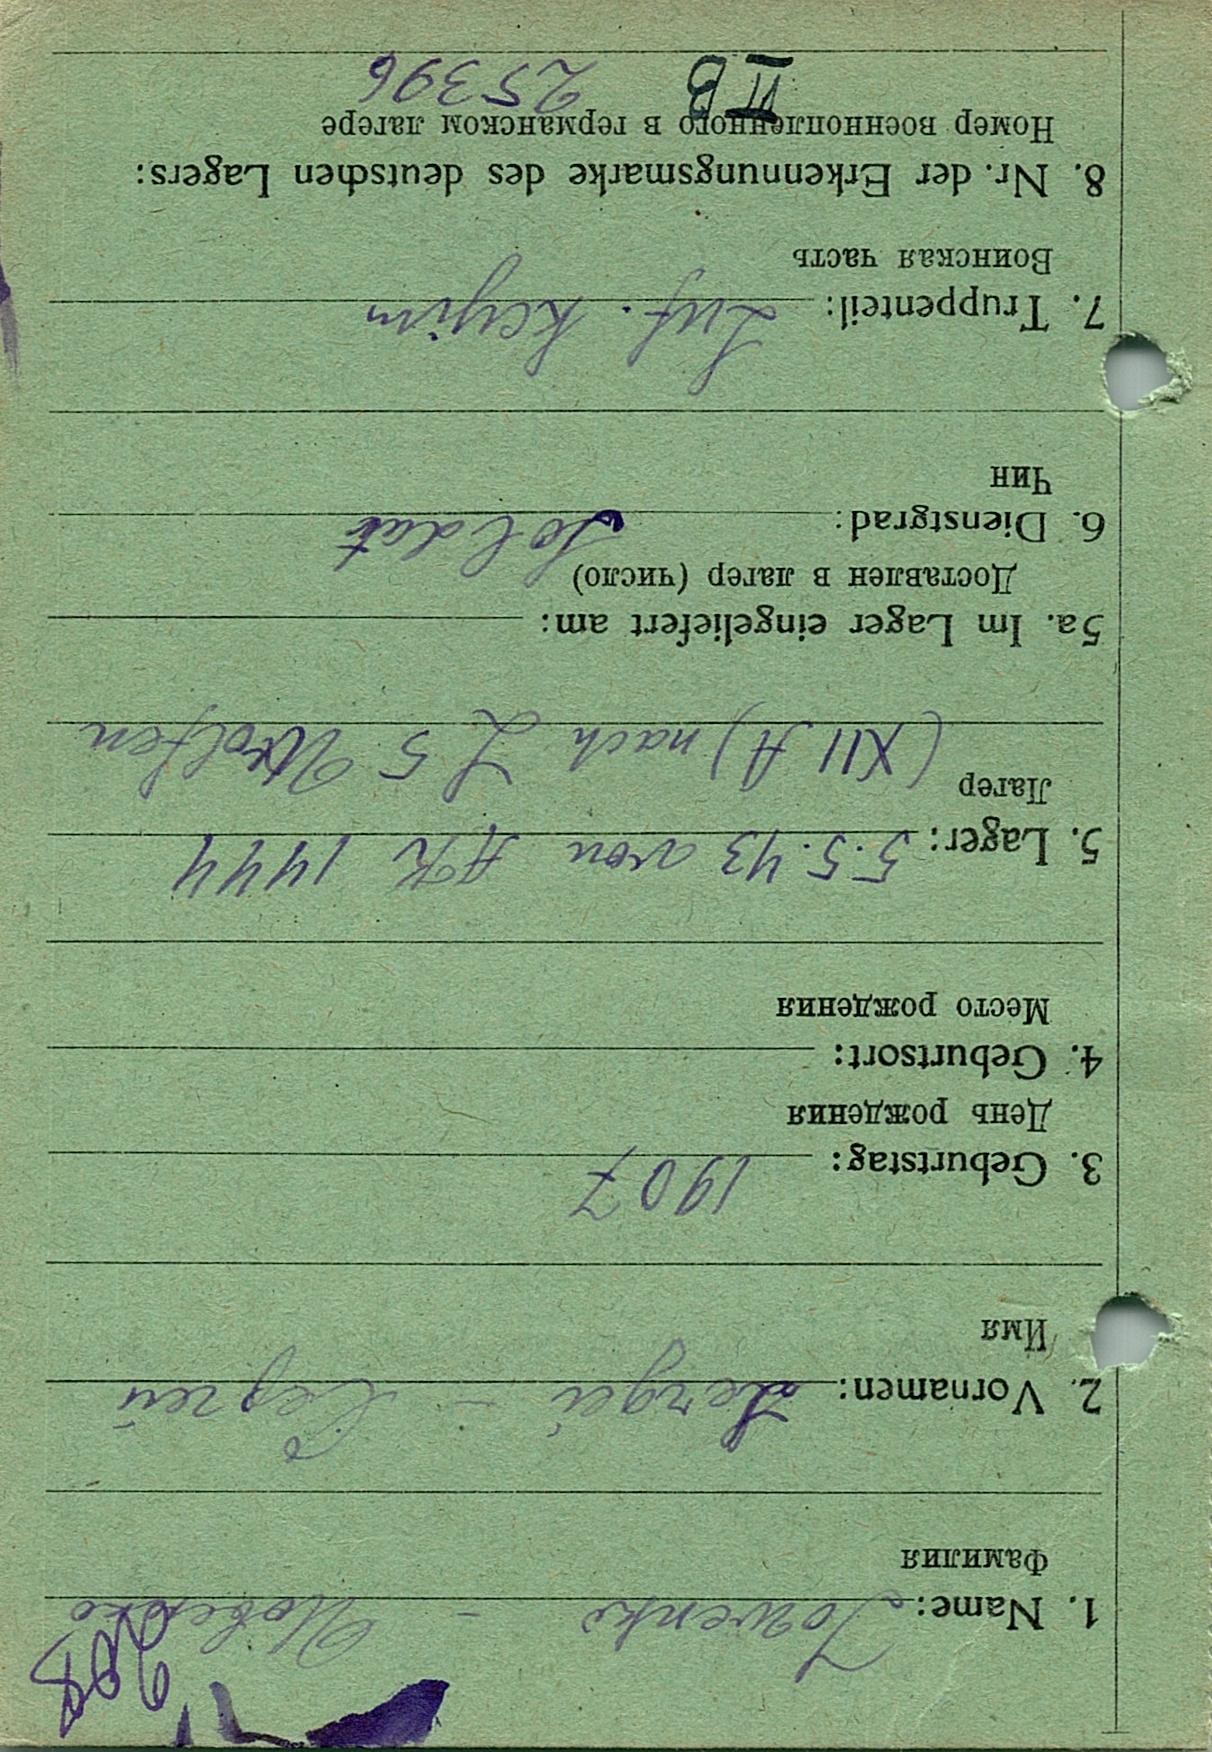 908
1. Name: Jowenko - Иовенко
Фамилия
2. Vornamen: Sergei - Сергей
Имя
3. Geburtstag: 1907
День рождения
4. Geburtsort:
Место рождения
5. Lager: 5.5.43 von AK 1444
Лагер
(XII A) nach L 5 Wolfen
5a. Im Lager eingeliefert am:
Доставлен в лагер (число)
6. Dienstgrad: Soldat
Чин
7. Truppenteil: Inf.
Воинская часть
8. Nr. der Erkennungsmarke des deutschen Lagers:
Номер военнопленного в германском лагере
VI B 25396